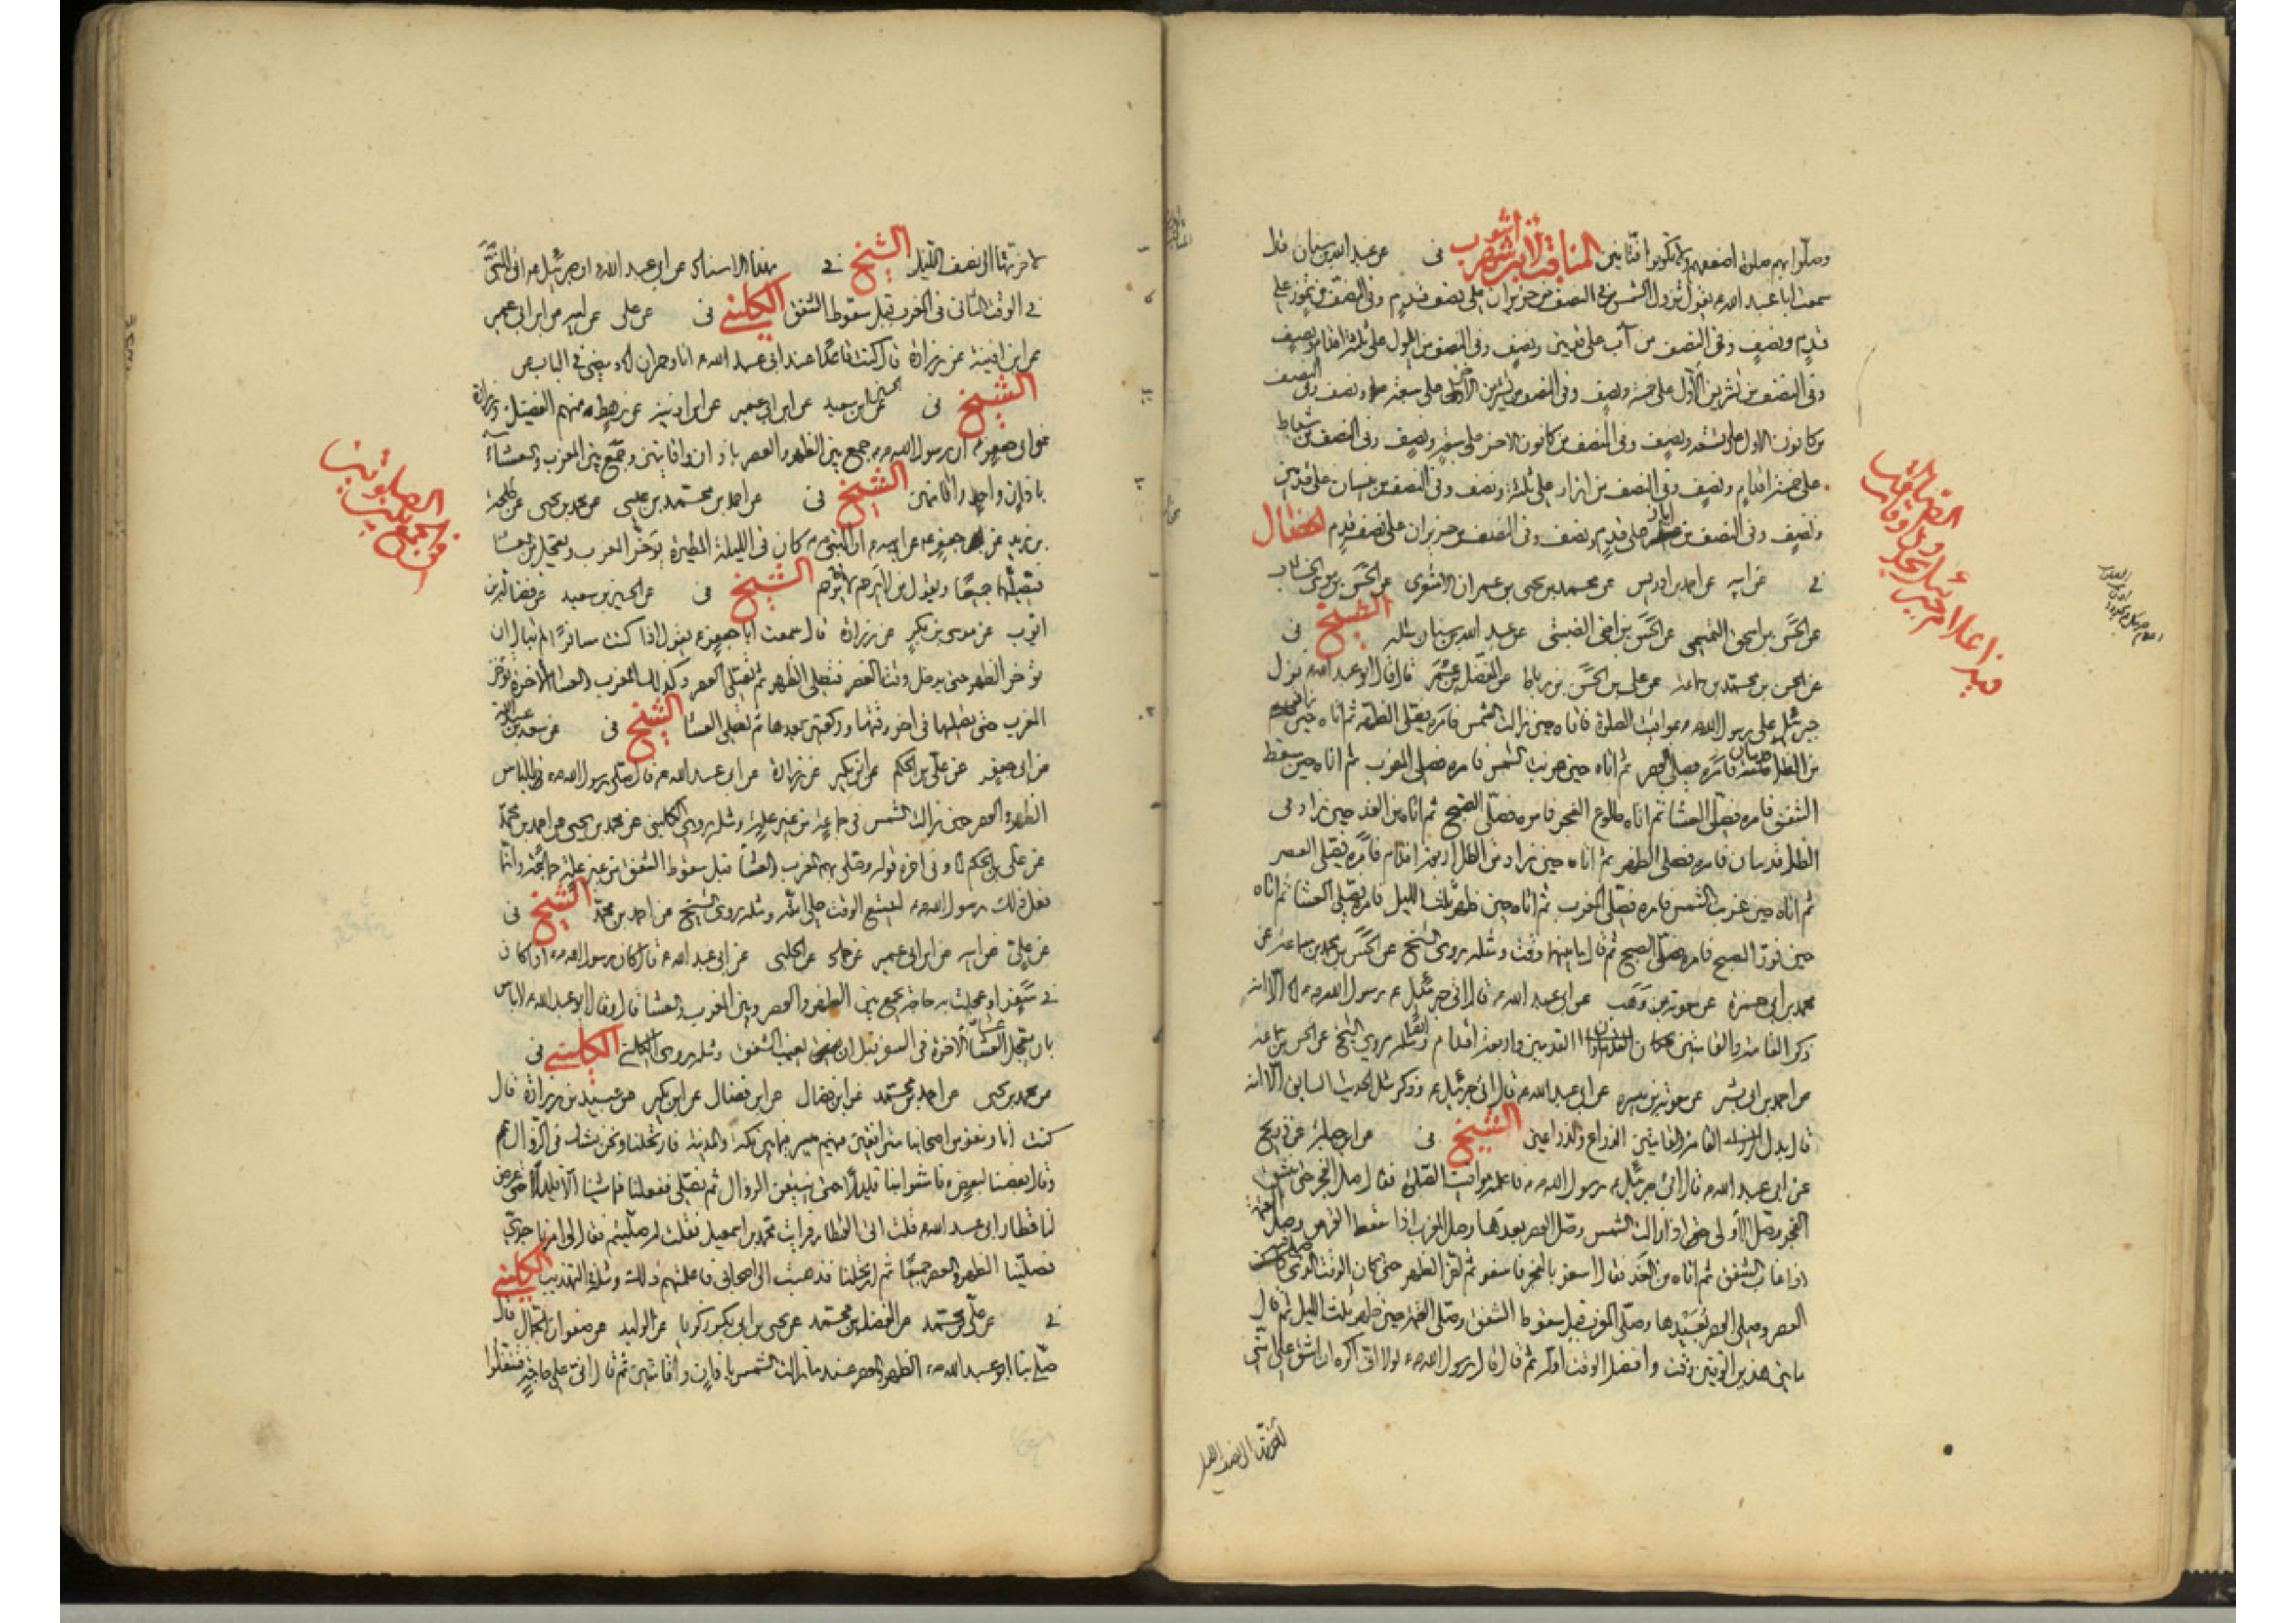 وصلوا بهم صلوة اضعفهم ولا تكونوا فتانين المناقب لابن شهر اشوب فى عن عبد الله بن سنان قال
سمعت ابا عبد الله ع يقول تزول الشمس فى النصف من حزيران على نصف قدم وفى النصف من تموز على
قدم ونصف وفى النصف من آب على قدمين ونصف وفى النصف من ايلول على ثلثة اقدام ونصف
وفى النصف من تشرين الاول على خمسة ونصف وفى النصف من تشرين الآخر على سبعة ونصف وفى النصف
من كانون الاول على تسعة ونصف وفى النصف من كانون الاخر على سبعة ونصف وفى النصف من شباط
على خمسة اقدام ونصف وفى النصف من اذار على ثلثة ونصف وفى النصف من نيسان على قدمين
ونصف وفى النصف من ايار على قدم ونصف وفى النصف من حزيران على نصف قدم الخصال
فى عن ابيه عن احمد بن ادريس عن محمد بن احمد بن يحيى بن عمران الاشعرى عن الحسن بن موسى الخشاب
عن الحسن بن اسحق التميمى عن الحسن بن اخى الضبى عن عبد الله بن سنان مثله الشيخ فى
عن الحسن بن محمد بن سماعة عن على بن الحسن بن رباط عن المفضل بن عمر قال قال ابو عبد الله ع نزل
جبرئيل على رسول الله ص بمواقيت الصلوة فاتاه حين زالت الشمس فامره فصلى الظهر ثم اتاه حين زاد
من الظل قدمان فامره فصلى العصر ثم اتاه حين غربت الشمس فامره فصلى المغرب ثم اتاه حين سقط
الشفق فامره فصلى العشا ثم اتاه طلوع الفجر فامره فصلى الصبح ثم اتاه من الغد حين زاد فى
الظل قدمان فامره فصلى الظهر ثم اتاه حين زاد من الظل اربعة اقدام فامره فصلى العصر
ثم اتاه حين غربت الشمس فامره فصلى المغرب ثم اتاه حين ذهب ثلث الليل فامره فصلى العشا ثم اتاه
حين نور الصبح فامره فصلى الصبح ثم قال ما بينهما وقت ومثله روى الشيخ عن الحسن بن محمد بن سماعة عن
محمد بن ابى حمزة عن معوية بن وهب عن ابى عبد الله ع قال اتى جبرئيل ع رسول الله ص الا انه
ذكر القامة والقامتين بدل القدمين واربعة اقدام ومثله روى الشيخ عن الحسن بن سماعة
عن احمد بن ابى بشر عن معوية بن ميسرة عن ابى عبد الله ع قال اتى جبرئيل ع وذكر مثل الحديث السابق الا انه
قال بدل القامة والقامتين الذراع والذراعين الشيخ فى عن ابن جبلة عن ذريح
عن ابى عبد الله ع قال اتى جبرئيل ع رسول الله ص فاعلمه مواقيت الصلوة فقال صل الفجر حين ينشق
الفجر وصل الاولى اذا زالت الشمس وصل العصر بعيدها وصل المغرب اذا سقط القرص وصل العتمة
اذا غاب الشفق ثم اتاه من الغد فقال اسفر بالفجر فاسفر ثم اخر الظهر حتى كان الوقت الذى صلى فيه
العصر وصلى العصر بعيدها وصلى المغرب قبل سقوط الشفق وصلى العتمة حين ذهب ثلث الليل ثم قال
ما بين هذين الوقتين وقت وافضل الوقت اوله ثم قال قال رسول الله ص لولا انى اكره ان اشق على امتى
لاخرتها الى نصف الليل
لاخرتها الى نصف الليل الشيخ فى بهذا الاسناد عن ابى عبد الله ع ان جبرئيل ع اتى النبى
فى الوقت الثانى فى المغرب قبل سقوط الشفق الكلينى فى عن على عن ابيه عن ابن ابى عمير
عن ابن اذينة عن زرارة قال كنت قاعدا عند ابى عبد الله ع انا وحمران
الشيخ فى عن الحسين بن سعيد عن ابن ابى عمير عن ابن اذينة عن رهط منهم الفضيل وزرارة
عن ابى جعفر ع ان رسول الله ص جمع بين الظهر والعصر باذان واقامتين وجمع بين المغرب والعشاء
باذان واحد واقامتين الشيخ فى عن احمد بن محمد بن عيسى عن محمد بن يحيى عن طلحة
بن زيد عن جعفر ع عن ابيه ع ان النبى ص كان فى الليلة المطيرة يؤخر المغرب ويعجل من العشا
فيصليهما جميعا ويقول من لا يرحم لا يرحم الشيخ فى عن الحسين بن سعيد عن فضالة بن
ايوب عن موسى بن بكر عن زرارة قال سمعت ابا جعفر ع يقول اذا كنت مسافرا لم تبال ان
تؤخر الظهر حتى يدخل وقت العصر فتصلى الظهر ثم تصلى العصر وكذلك المغرب والعشا الآخرة تؤخر
المغرب حتى تصليها فى اخر وقتها وركعتين بعدها ثم تصلى العشا الشيخ فى عن سعد بن عبد الله
عن ابى جعفر عن على بن الحكم عن ابن بكير عن زرارة عن ابى عبد الله ع قال صلى رسول الله ص بالناس
الظهر والعصر حين زالت الشمس فى جماعة من غير علة ومثله روى الكلينى عن محمد بن يحيى عن احمد بن محمد
عن على بن الحكم وفى اخره قوله وصلى بهم المغرب والعشا قبل سقوط الشفق من غير علة فى جماعة وانما
فعل ذلك رسول الله ص ليتسع الوقت على امته ومثله روى الشيخ عن احمد بن محمد الشيخ فى
عن على عن ابيه عن ابن ابى عمير عن حماد عن الحلبى عن ابى عبد الله ع قال كان رسول الله ص اذا كان
فى سفر او عجلت به حاجة يجمع بين الظهر والعصر وبين المغرب والعشا قال وقال ابو عبد الله ع لا باس
بان تعجل عشا الآخرة فى السفر قبل ان يغيب الشفق ومثله روى الكلينى الكلينى فى
عن محمد بن يحيى عن احمد بن محمد عن ابن فضال عن ابن بكير عن عبيد بن زرارة قال
كنت انا ونفر من اصحابنا مترافقين فيهم ميسر فيما بين مكة والمدينة فارتحلنا ونحن نشك فى الزوال
وقال بعضنا لبعض فامشوا بنا قليلا حتى نتيقن الزوال ثم نصلى ففعلنا فما مشينا الا قليلا حتى عرض
لنا قطار ابى عبد الله ع فقلت اتى القطار فرايت محمد بن اسمعيل فقلت له صليتم فقال لى امرنا جدى
فصلينا الظهر والعصر جميعا ثم ارتحلنا فذهبت الى اصحابى فاعلمتهم ذلك ومثله التهذيب الكلينى
فى عن على بن محمد عن الفضل بن محمد عن يحيى بن ابى بكر زكريا عن الوليد عن صفوان الجمال قال
صلى بنا ابو عبد الله ع الظهر والعصر عند ما زالت الشمس باذان واقامتين ثم قال انى على حاجة فتنفلوا